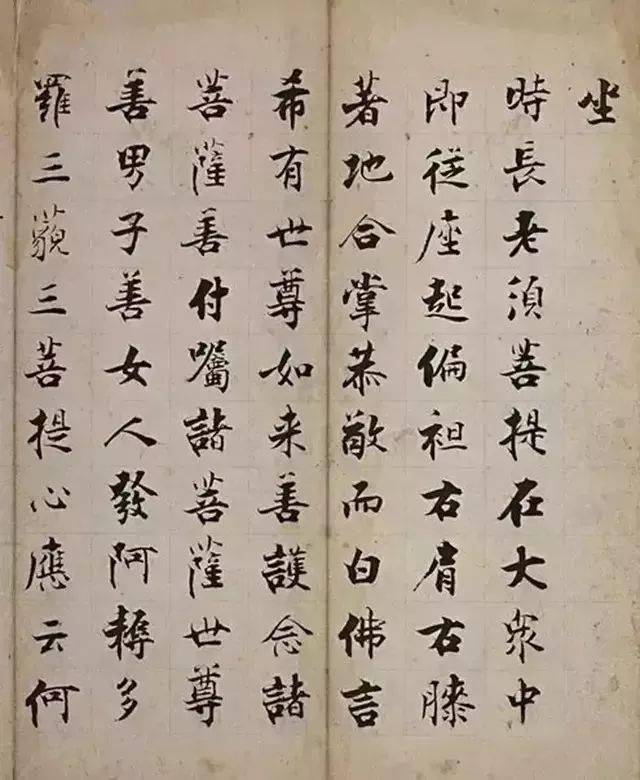 坐
時長老須菩提在大衆中
即從座起偏袒右肩右膝
著地合掌恭敬而白佛言
希有世尊如来善護念諸
菩薩善付囑諸菩薩世尊
善男子善女人發阿耨多
羅三藐三菩提心應云何